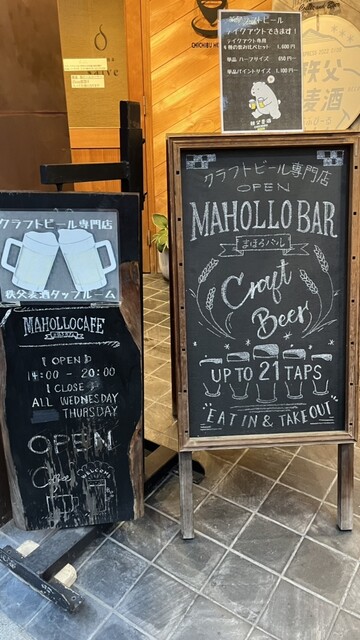 クラフトビール専門店
秩父麦酒タップルーム
MAHOLLOCAFE
[OPEN]
14:00 - 20:00
[CLOSE]
ALL WEDNESDAY
THURSDAY
OPEN
Coffee
WELCOME
クラフトビール
テイクアウトできます!
テイクアウト専用
単品 ハーフサイズ 850円~
単品パイントサイズ 1,100円~
秩父麦酒
クラフトビール専門店
OPEN
MAHOLLO BAR
まほろバル
Craft
Beer
UP TO 21 TAPS
EAT IN & TAKE OUT
秩父
麦酒